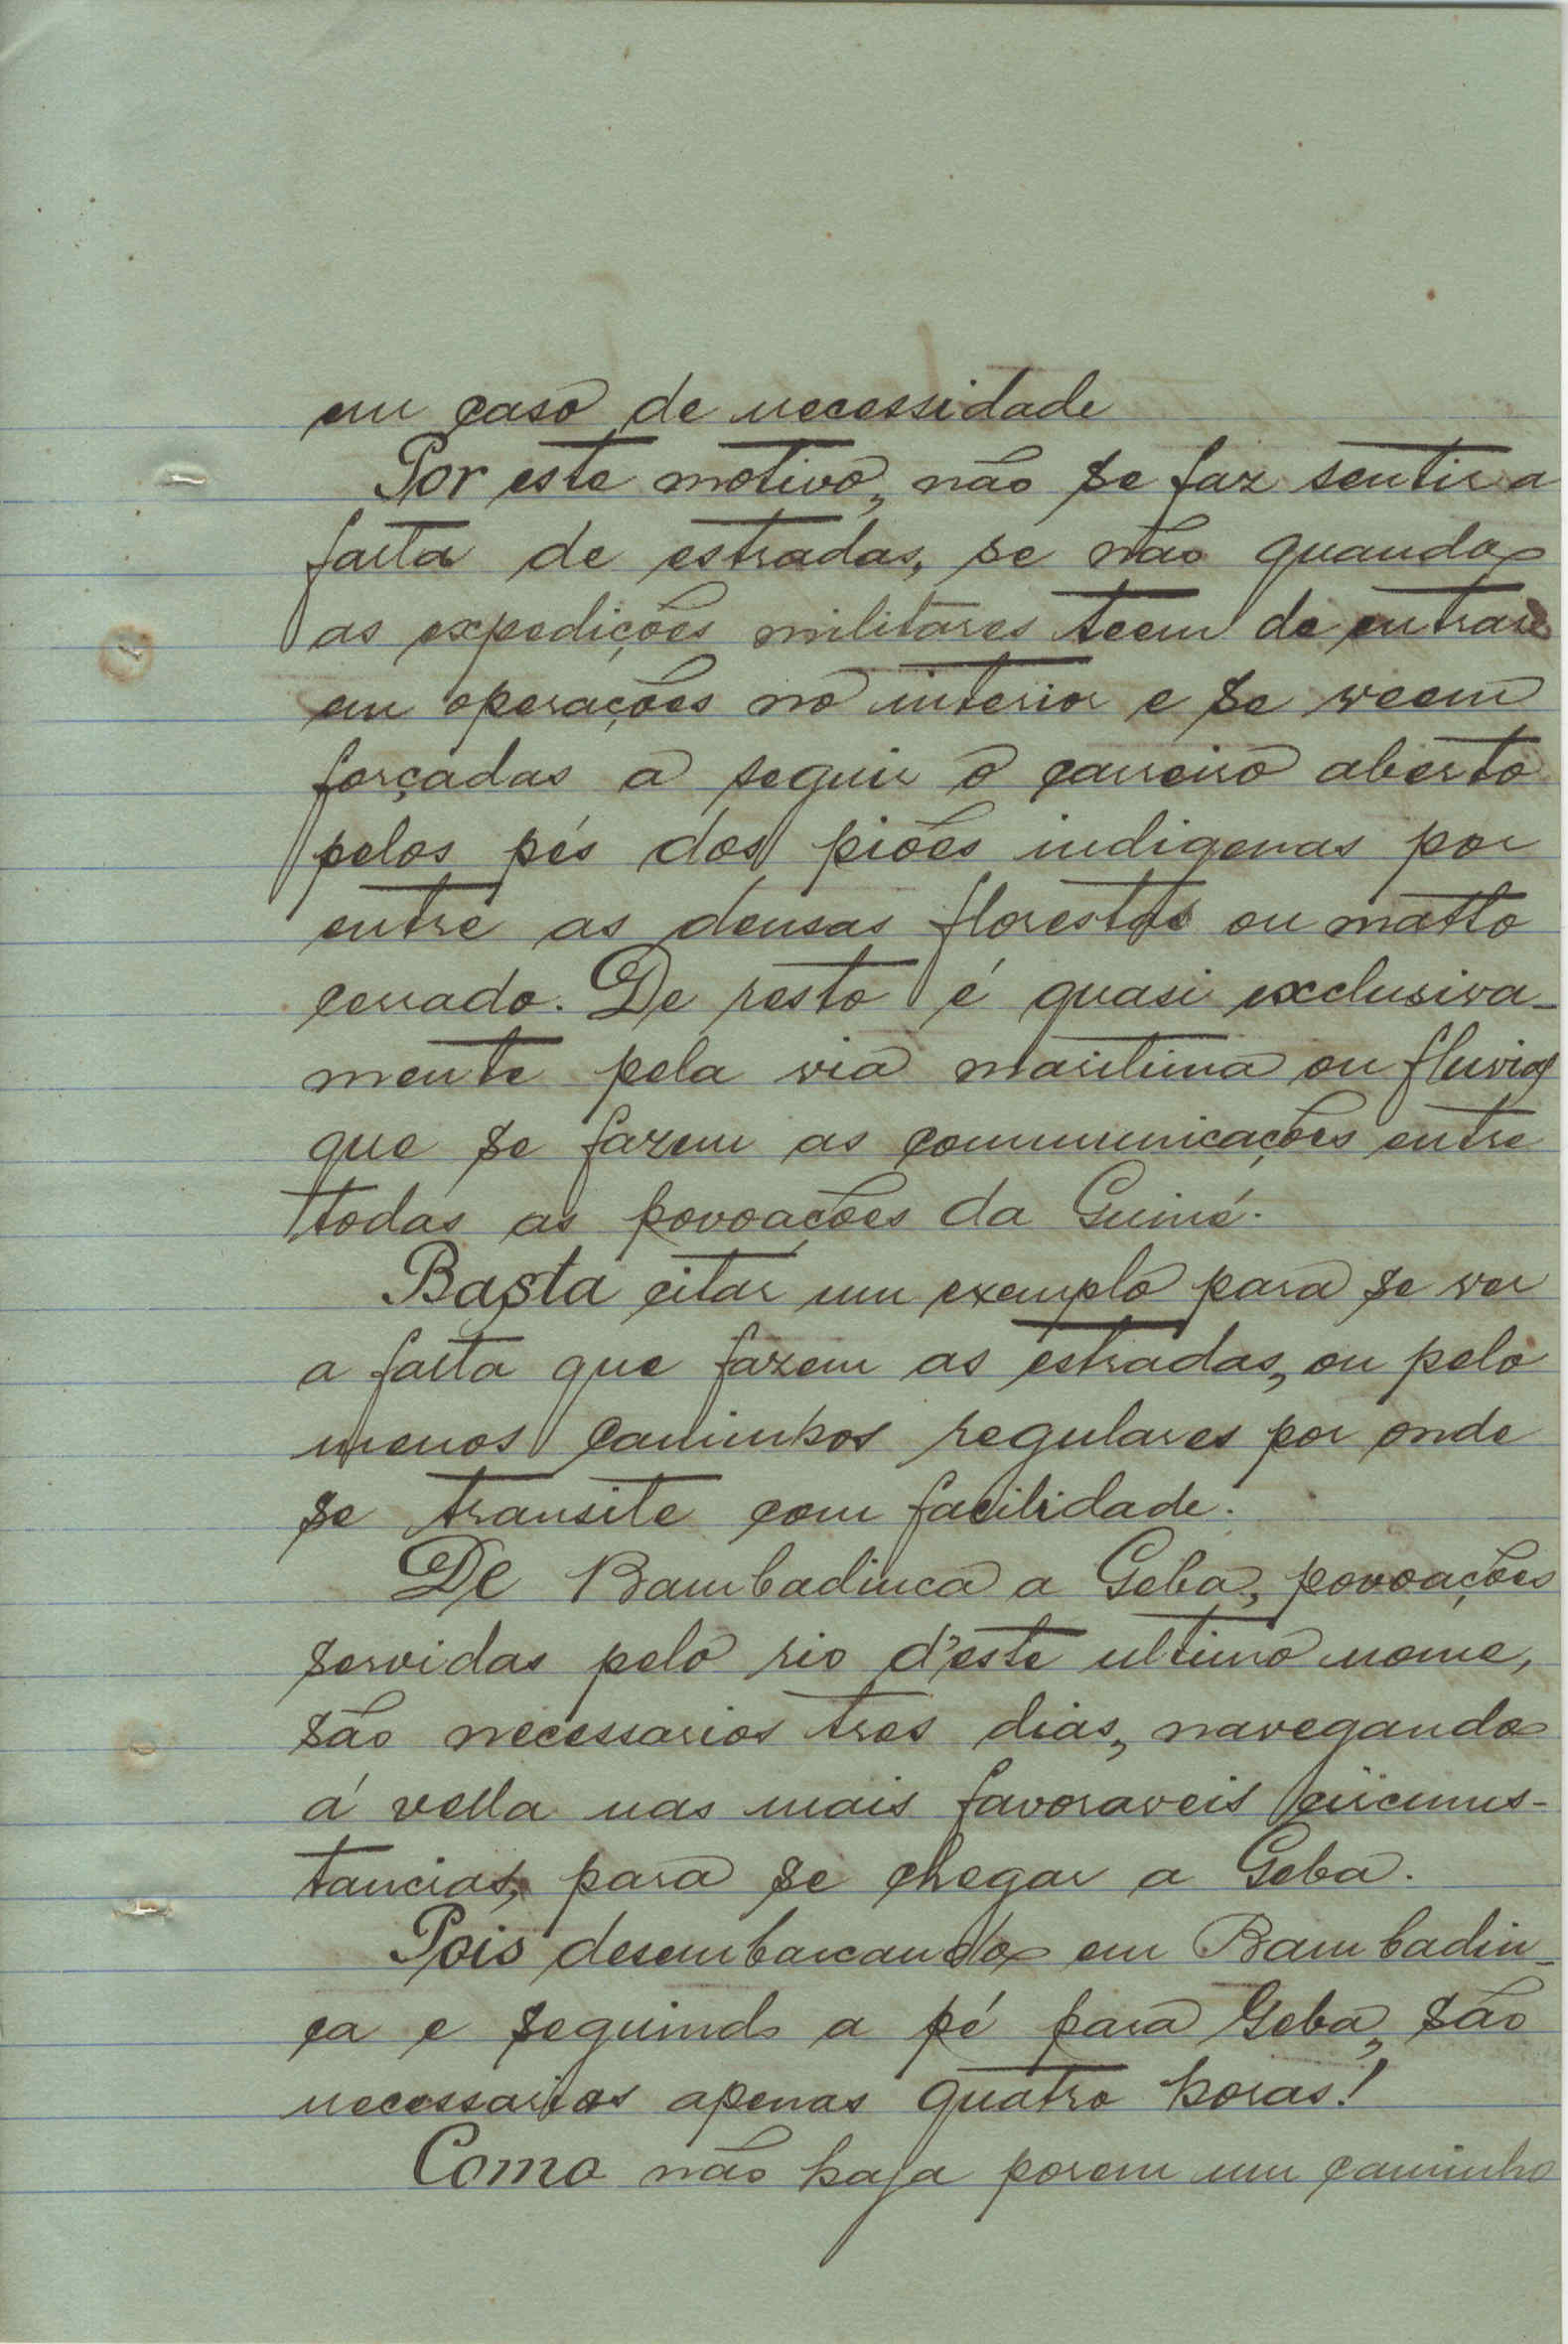 em caso de necessidade
Por este motivo, não se faz sentir a
falta de estradas, se não quando
as expedições militares teem de entrar
em operações no interior e se veem
forçadas a seguir o carreiro aberto
pelos pés dos piões indigenas por
entre as densas florestas ou matto
cerrado. De resto é quasi exclusiva-
mente pela via maritima ou fluvial
que se fazem as communicações entre
todas as povoações da Guiné.
Basta citar um exemplo para se ver
a falta que fazem as estradas, ou pelo
menos caminhos regulares por onde
se transite com facilidade.
De Bambadinca a Geba, povoações
servidas pelo rio d'este ultimo nome,
são necessarios tres dias, navegando
á vella nas mais favoraveis circums-
tancias, para se chegar a Geba.
Pois desembarcando em Bambadin-
ca e seguindo a pé para Geba, são
necessarias apenas quatro horas!
Como não haja porem um caminho